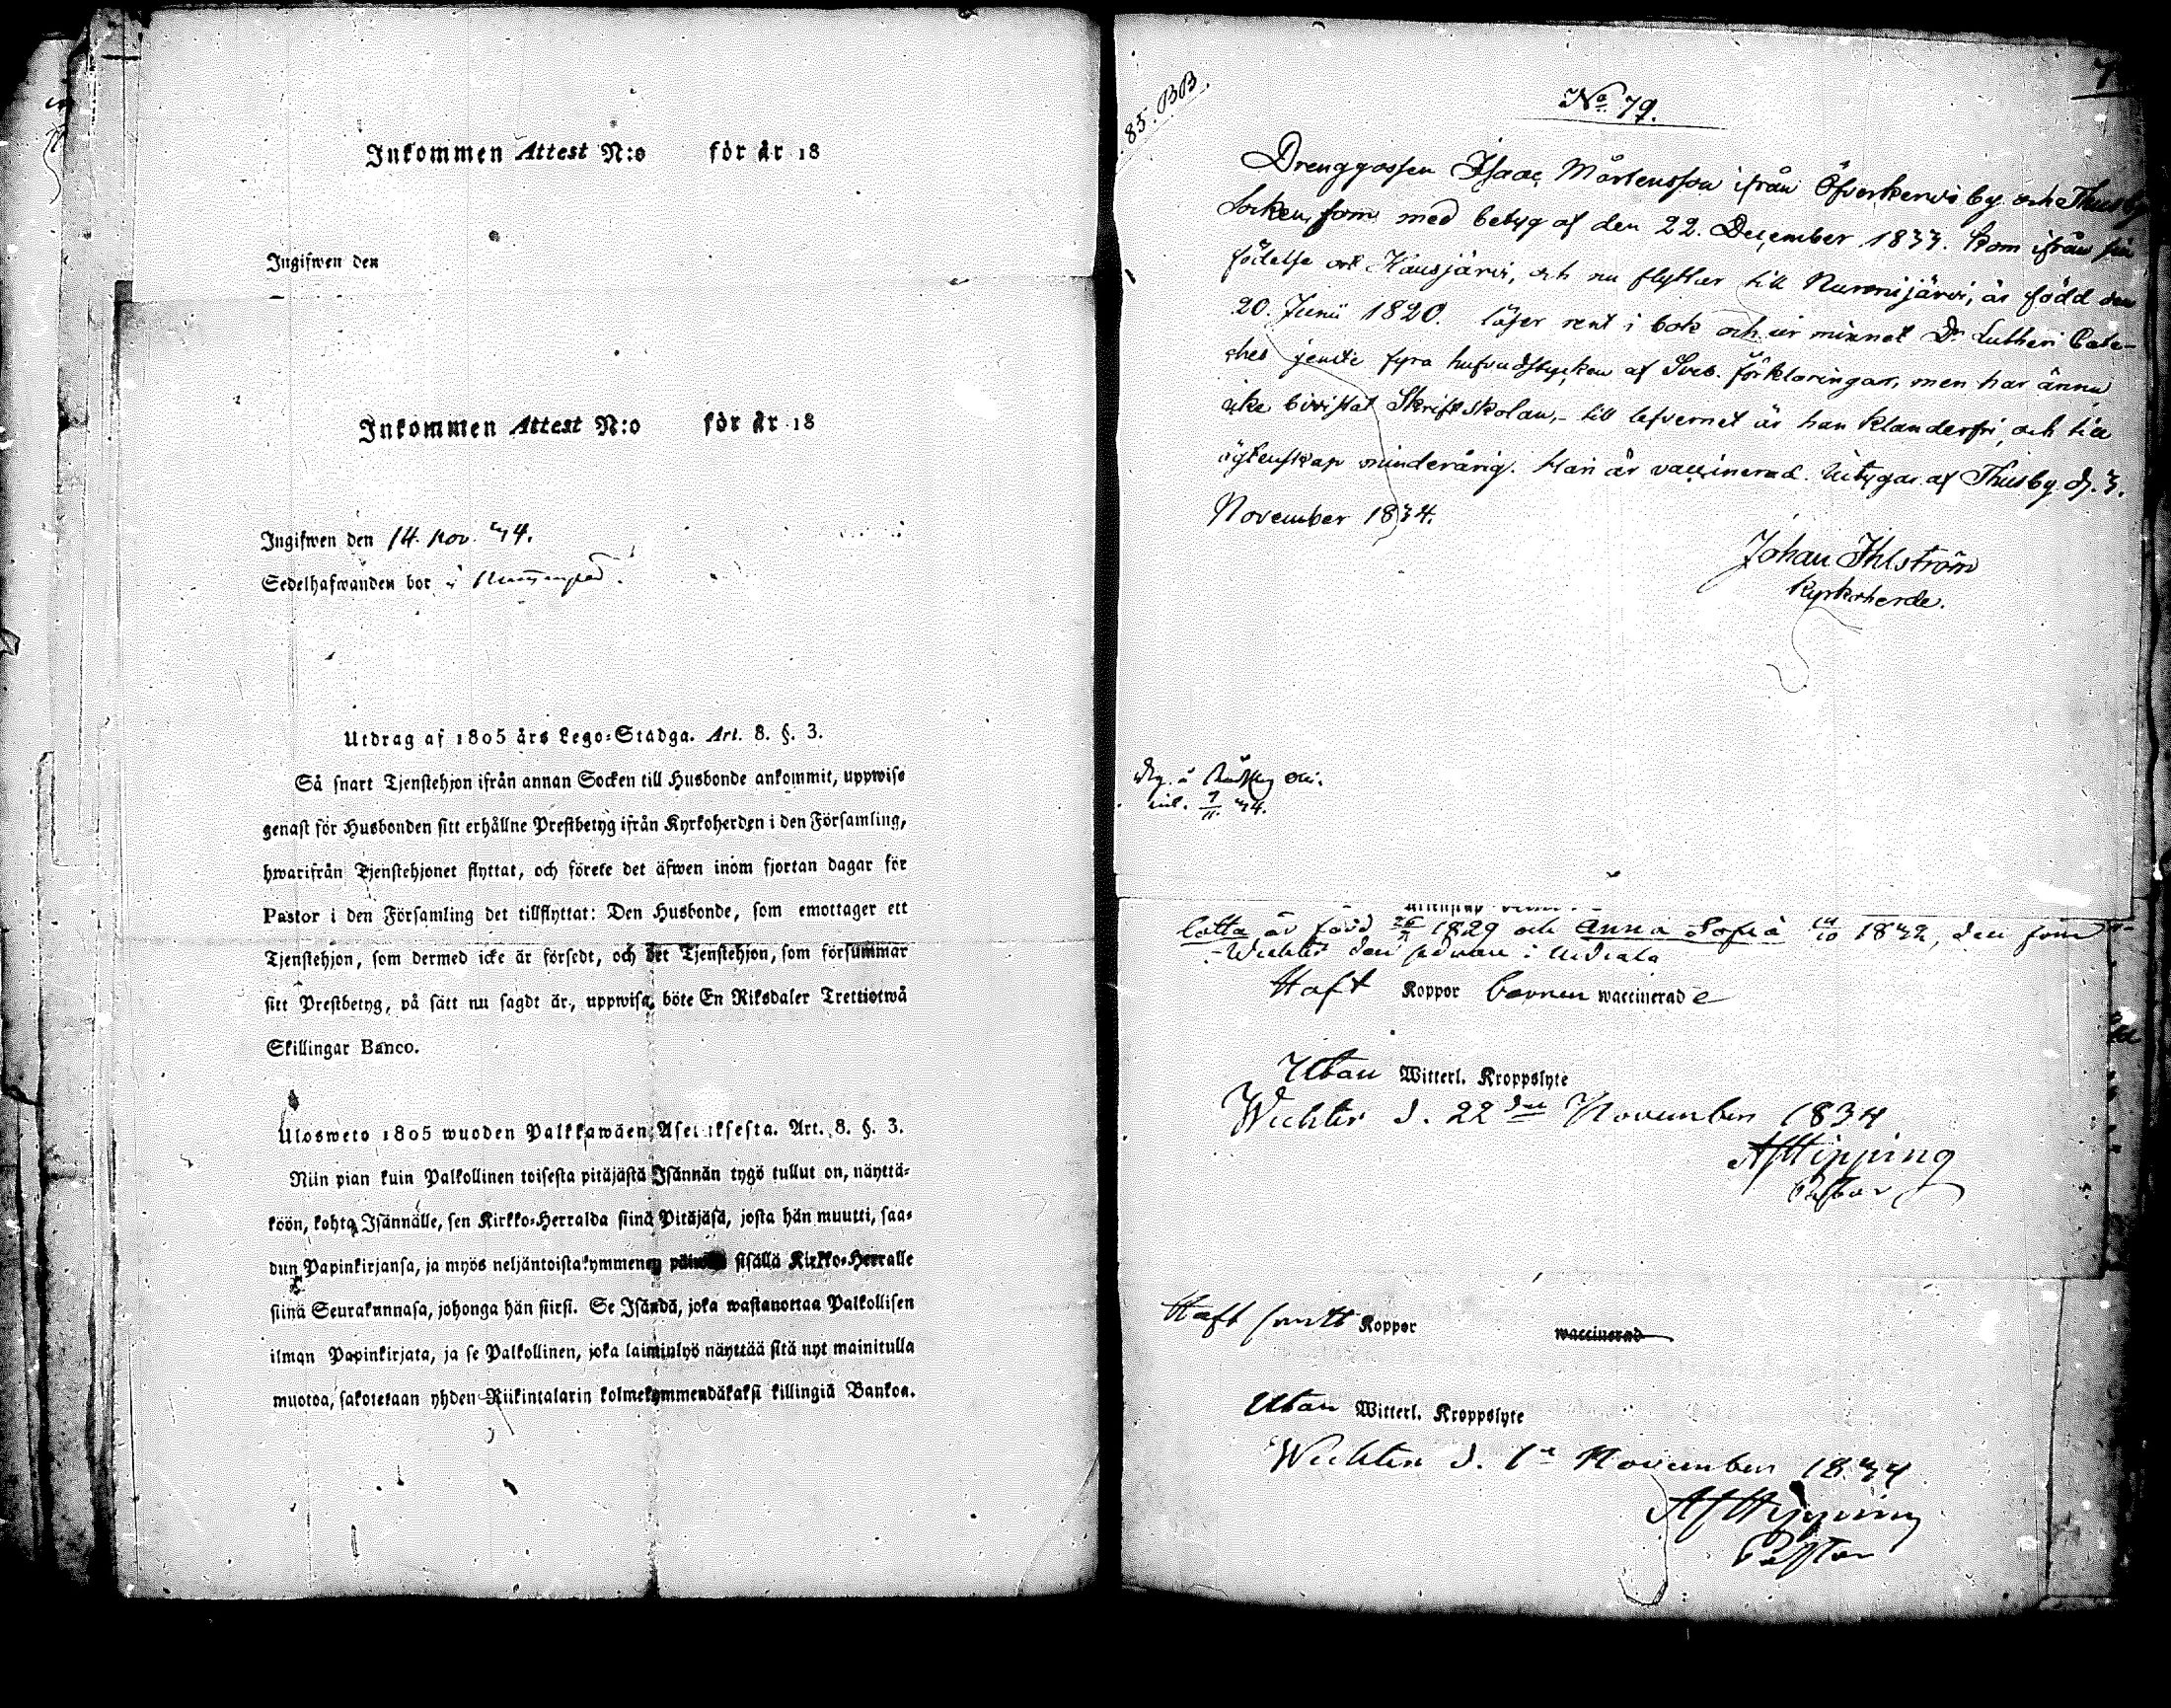 Inkommen Attest N:o för år 18
Ingifwen den
Inkommen Attest N:o för år 18
Ingifwen den 14. nov. 34.
Sedelhafwanden bor i
Utdrag af 1805 års Lego-Stadga. Art. 8. §. 3.
Så snart Tjenstehjon ifrån annan Socken till Husbonde ankommit, uppwise
genast för Husbonden sitt erhållne Prestbetyg ifrån Kyrkoherden i den Församling,
hwarifrån Tjenstehjonet flyttat, och förete det äfwen inom fjortan dagar för
Pastor i den Församling det tillflyttat: Den Husbonde, som emottager ett
Tjenstehjon, som dermed icke är försedt, och det Tjenstehjon, som försummar
sitt Prestbetyg, på sätt nu sagdt är, uppwisa, böte En Riksdaler Trettiotwå
Skillingar Banco.
Ulosweto 1805 wuoden Palkkawäen Asetuksesta. Art. 8. §. 3.
Niin pian kuin Palkollinen toisesta pitäjästä Isännän tygö tullut on, näyttä-
köön, kohta Isännälle, sen Kirkko-Herralda siinä Pitäjäsä, josta hän muutti, saa-
dun Papinkirjansa, ja myös neljäntoistakymmenen päiwän sisällä Kirkko-Herralle
siinä Seurakunnasa, johonga hän siirsi. Se Isändä, joka wastanottaa Palkollisen
ilman Papinkirjata, ja se Palkollinen, joka laiminlyö näyttää sitä nyt mainitulla
muotoa, sakotetaan yhden Riikintalarin kolmekymmendäkaksi killingiä Bankoa.
85. BB.
No 79.
Drenggossen Isaac Mårtensson ifrån Öfverkervo by och Thusby
Socken, som med betyg af den 22. December 1833. kom ifrån sin
födelse ort Hausjärvi, och nu flyttar till Nurmijärvi, är född den
20. Junii 1820. läser rent i bok och ur minnet Dr Lutheri Cate-
ches jemte fyra hufvudstycken af Sveb. förklaringar, men har ännu
icke bivistat Skriftskolan, - till lefvernet är han klanderfri, och till
ägtenskap minderårig. Han är vaccinerad. Uitygar af Thusby d. 3.
November 1834.
Johan Ihlström
Kyrkoherde.
Lotta är född 1829 och Anna Sofia 1832, den förra
Wichtis den sednare i
Haft Koppor barnen waccinerade
Utan Witterl. Kroppslyte
Wichtis d. 22 November 1834
AJ Hipping
Pastor
Haft Koppor waccinerad
Utan Witterl. Kroppslyte
Wichtis d. 1 November 1834
AJ Hipping
Pastor